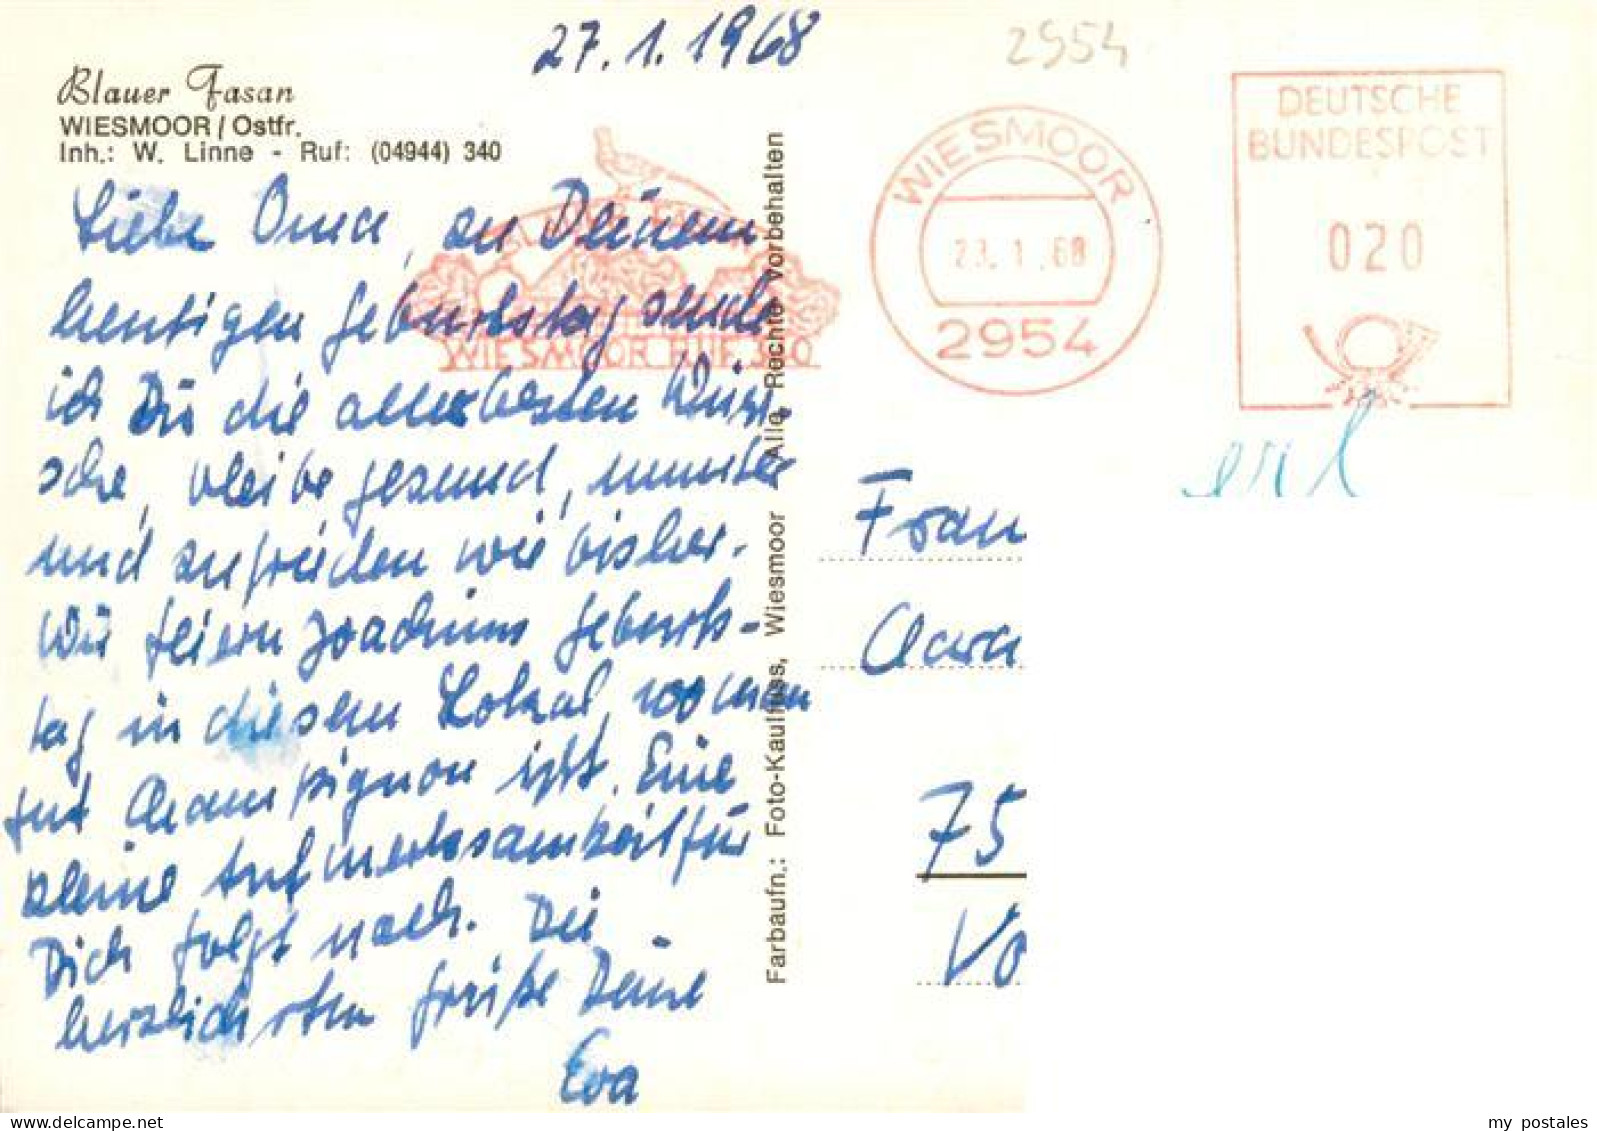 27.1.1968
2954
Blauer Fasan
WIESMOOR / Ostfr.
Inh.: W. Linne - Ruf: (04944) 340
Liebe Oma, zu Deinem
heutigen Geburtstag sende
ich Dir die allerbesten Wün-
sche, bleibe gesund, munter
und zufrieden wie bisher.
Wir feiern Joachims Geburts-
tag in diesem Lokal, wo man
gut Champignon ißt. Eine
kleine Aufmerksamkeit für
Dich folgt nach. Die
herzlichsten Grüße Deine
Eva
WIESMOOR RUF 340
Farbaufn.: Foto-Kaulfuss, Wiesmoor Alle Rechte vorbehalten
WIESMOOR
23.1.68
2954
DEUTSCHE
BUNDESPOST
020
erl
Frau
Clara
75
Vo
my_postales